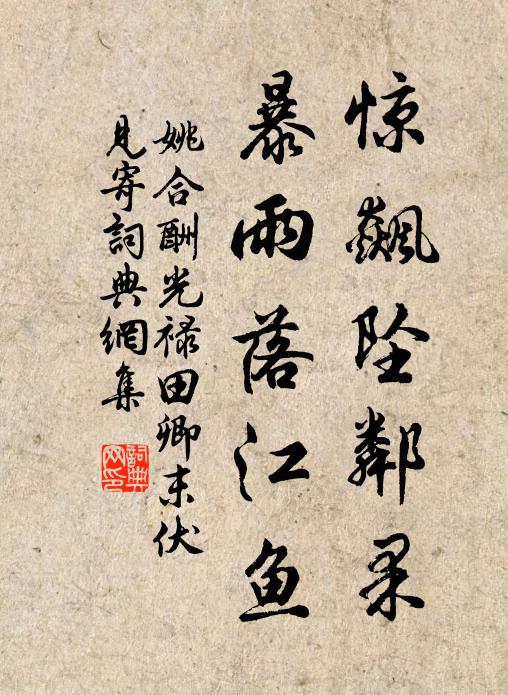 惊飙坠鄰果
暴雨落江鱼
姚合酬光禄田卿末伏
見寄詞典網集
詞典网印